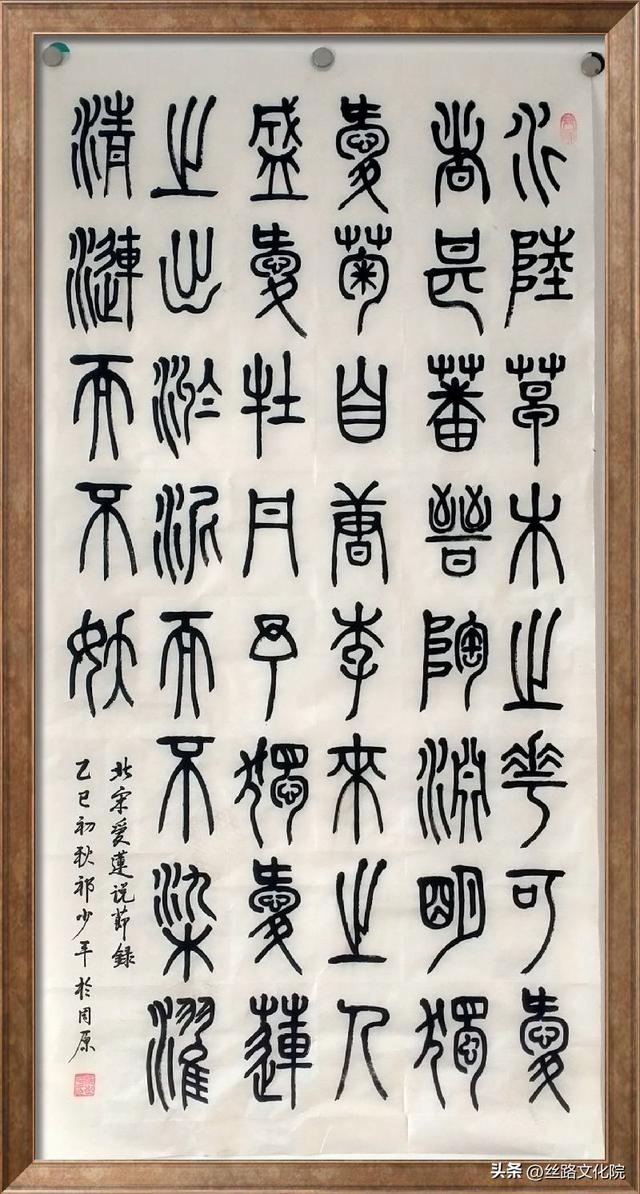 水陸草木之華可愛
者甚蕃晉陶淵明獨
愛菊自唐李來之人
盛愛牡丹予獨愛蓮
之出淤泥而不染濯
清漣而不妖
北宋爱蓮说節録
乙巳初秋祁少平於周原
头条 @丝路文化院